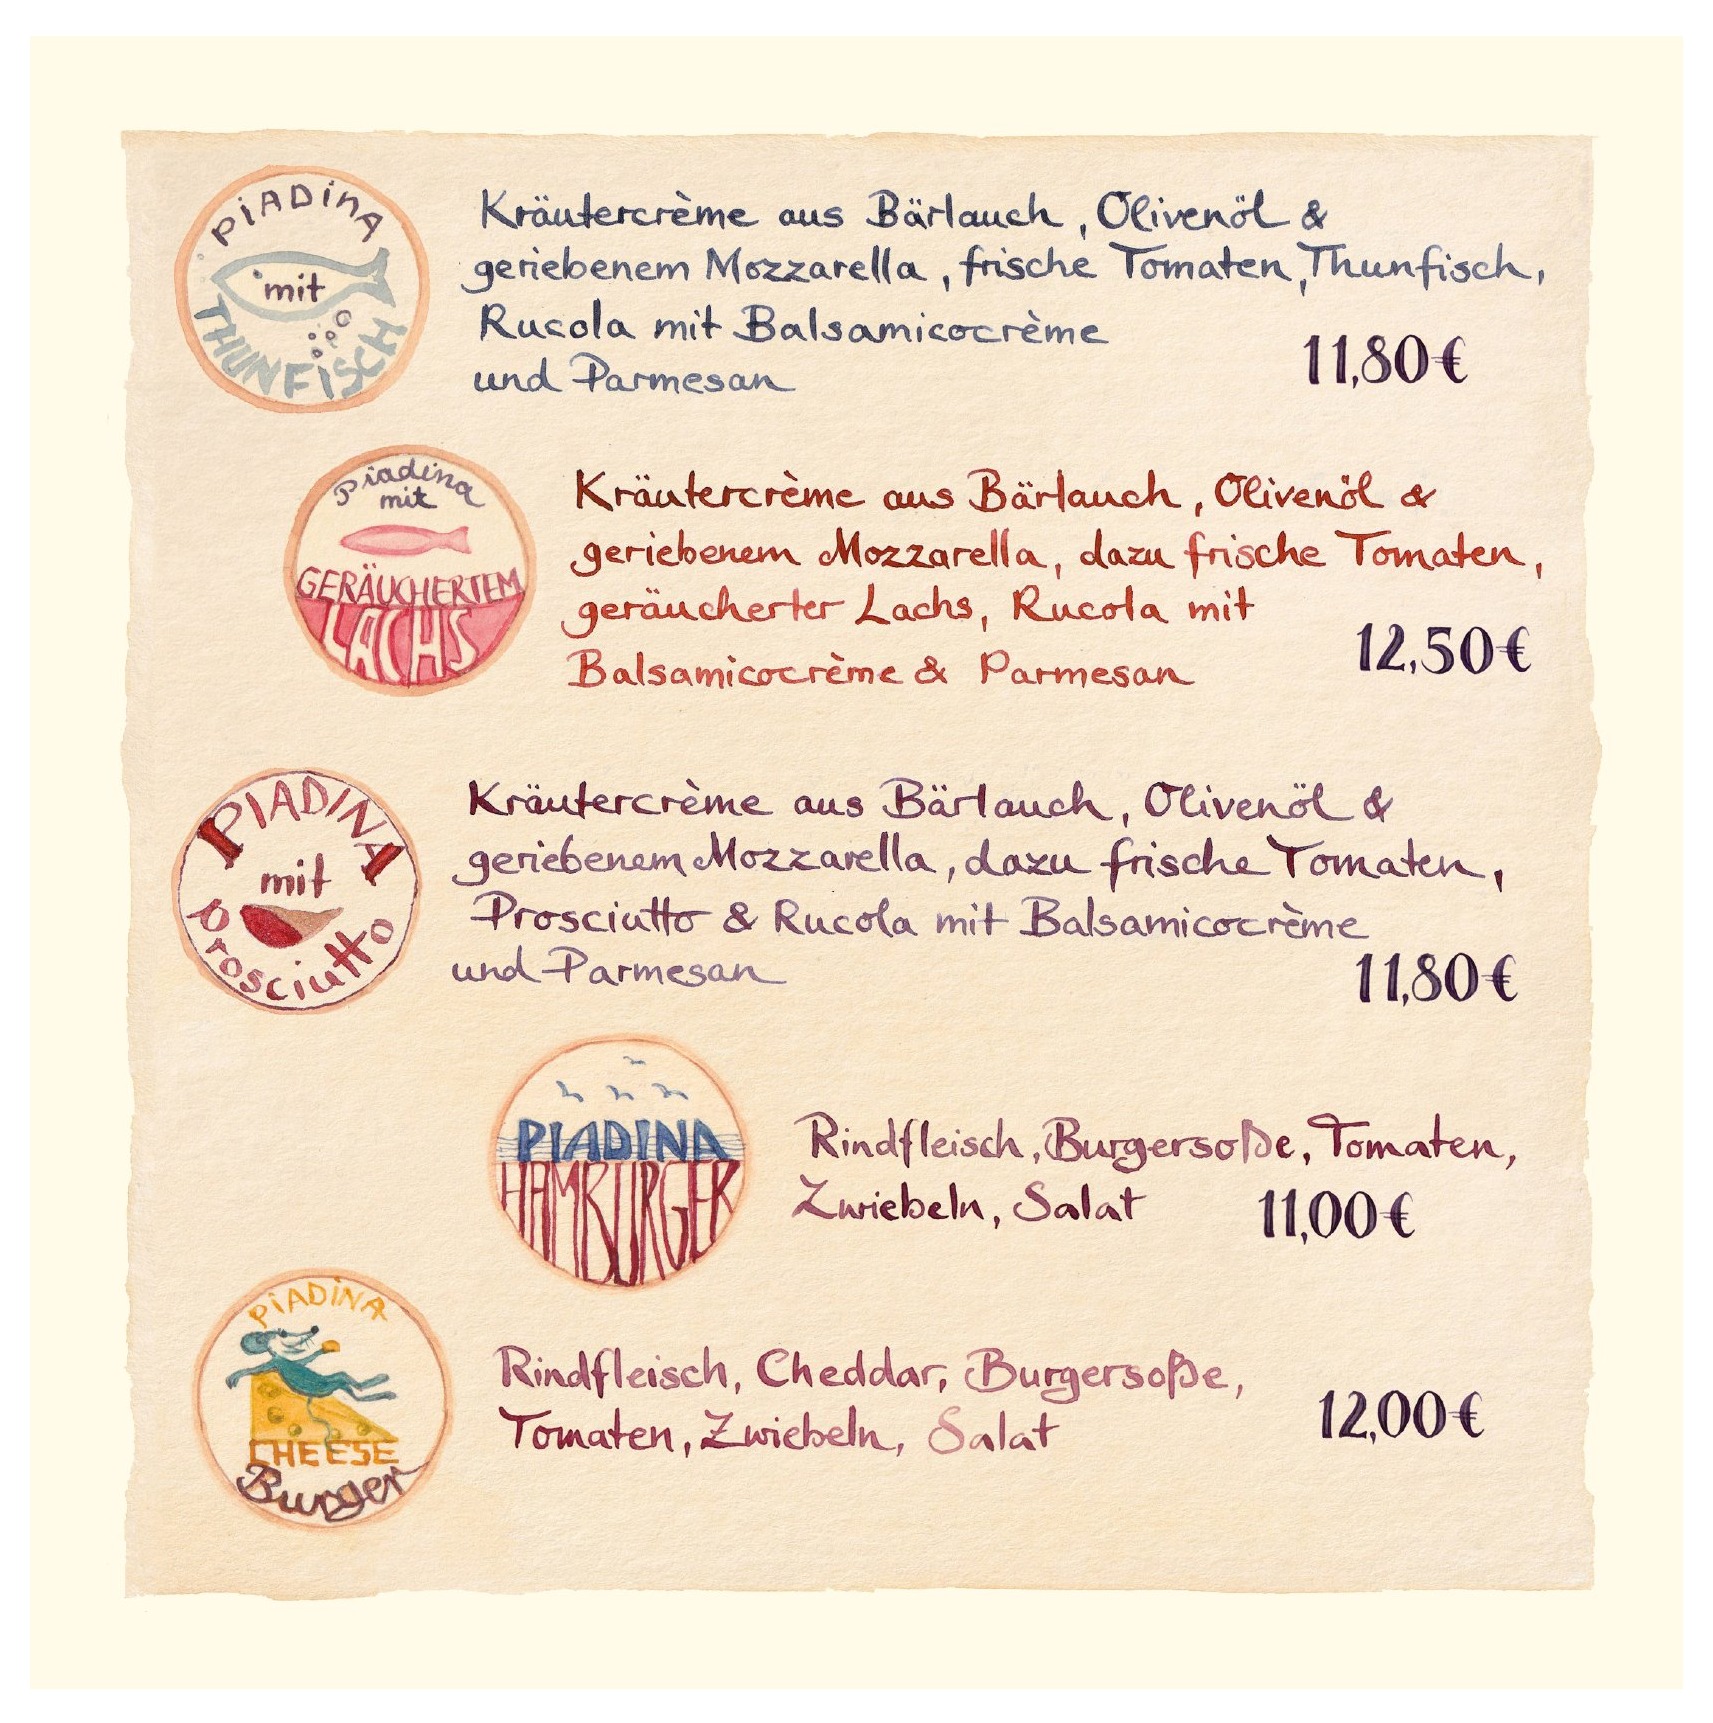 PiADinA
mit
THUNFISCH
Kräutercrème aus Bärlauch, Olivenöl &
geriebenem Mozzarella, frische Tomaten, Thunfisch,
Rucola mit Balsamicocrème
und Parmesan
11,80€
Piadina
mit
GERÄUCHERTEM
LACHS
Kräutercrème aus Bärlauch, Olivenöl &
geriebenem Mozzarella, dazu frische Tomaten,
geräucherter Lachs, Rucola mit
Balsamicocrème & Parmesan
12,50€
PIADINA
mit
Prosciutto
Kräutercrème aus Bärlauch, Olivenöl &
geriebenem Mozzarella, dazu frische Tomaten,
Prosciutto & Rucola mit Balsamicocrème
und Parmesan
11,80€
PIADINA
HAMBURGER
Rindfleisch, Burgersoße, Tomaten,
Zwiebeln, Salat
11,00€
PiADiNA
CHEESE
Burger
Rindfleisch, Cheddar, Burgersoße,
Tomaten, Zwiebeln, Salat
12,00€